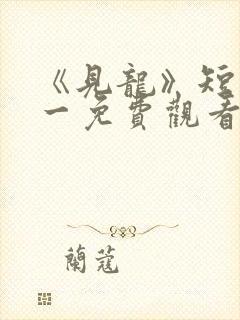 《見龍》短
一免費觀看
蘭蔻